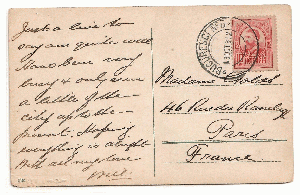 Just a line to
say am quite well
Have been very
busy & only seen
a little of the
city up to the
present. Hoping
everything is alright
With all my love
Will.
BUCURESCI
Madame
146 Rue de
Paris
France